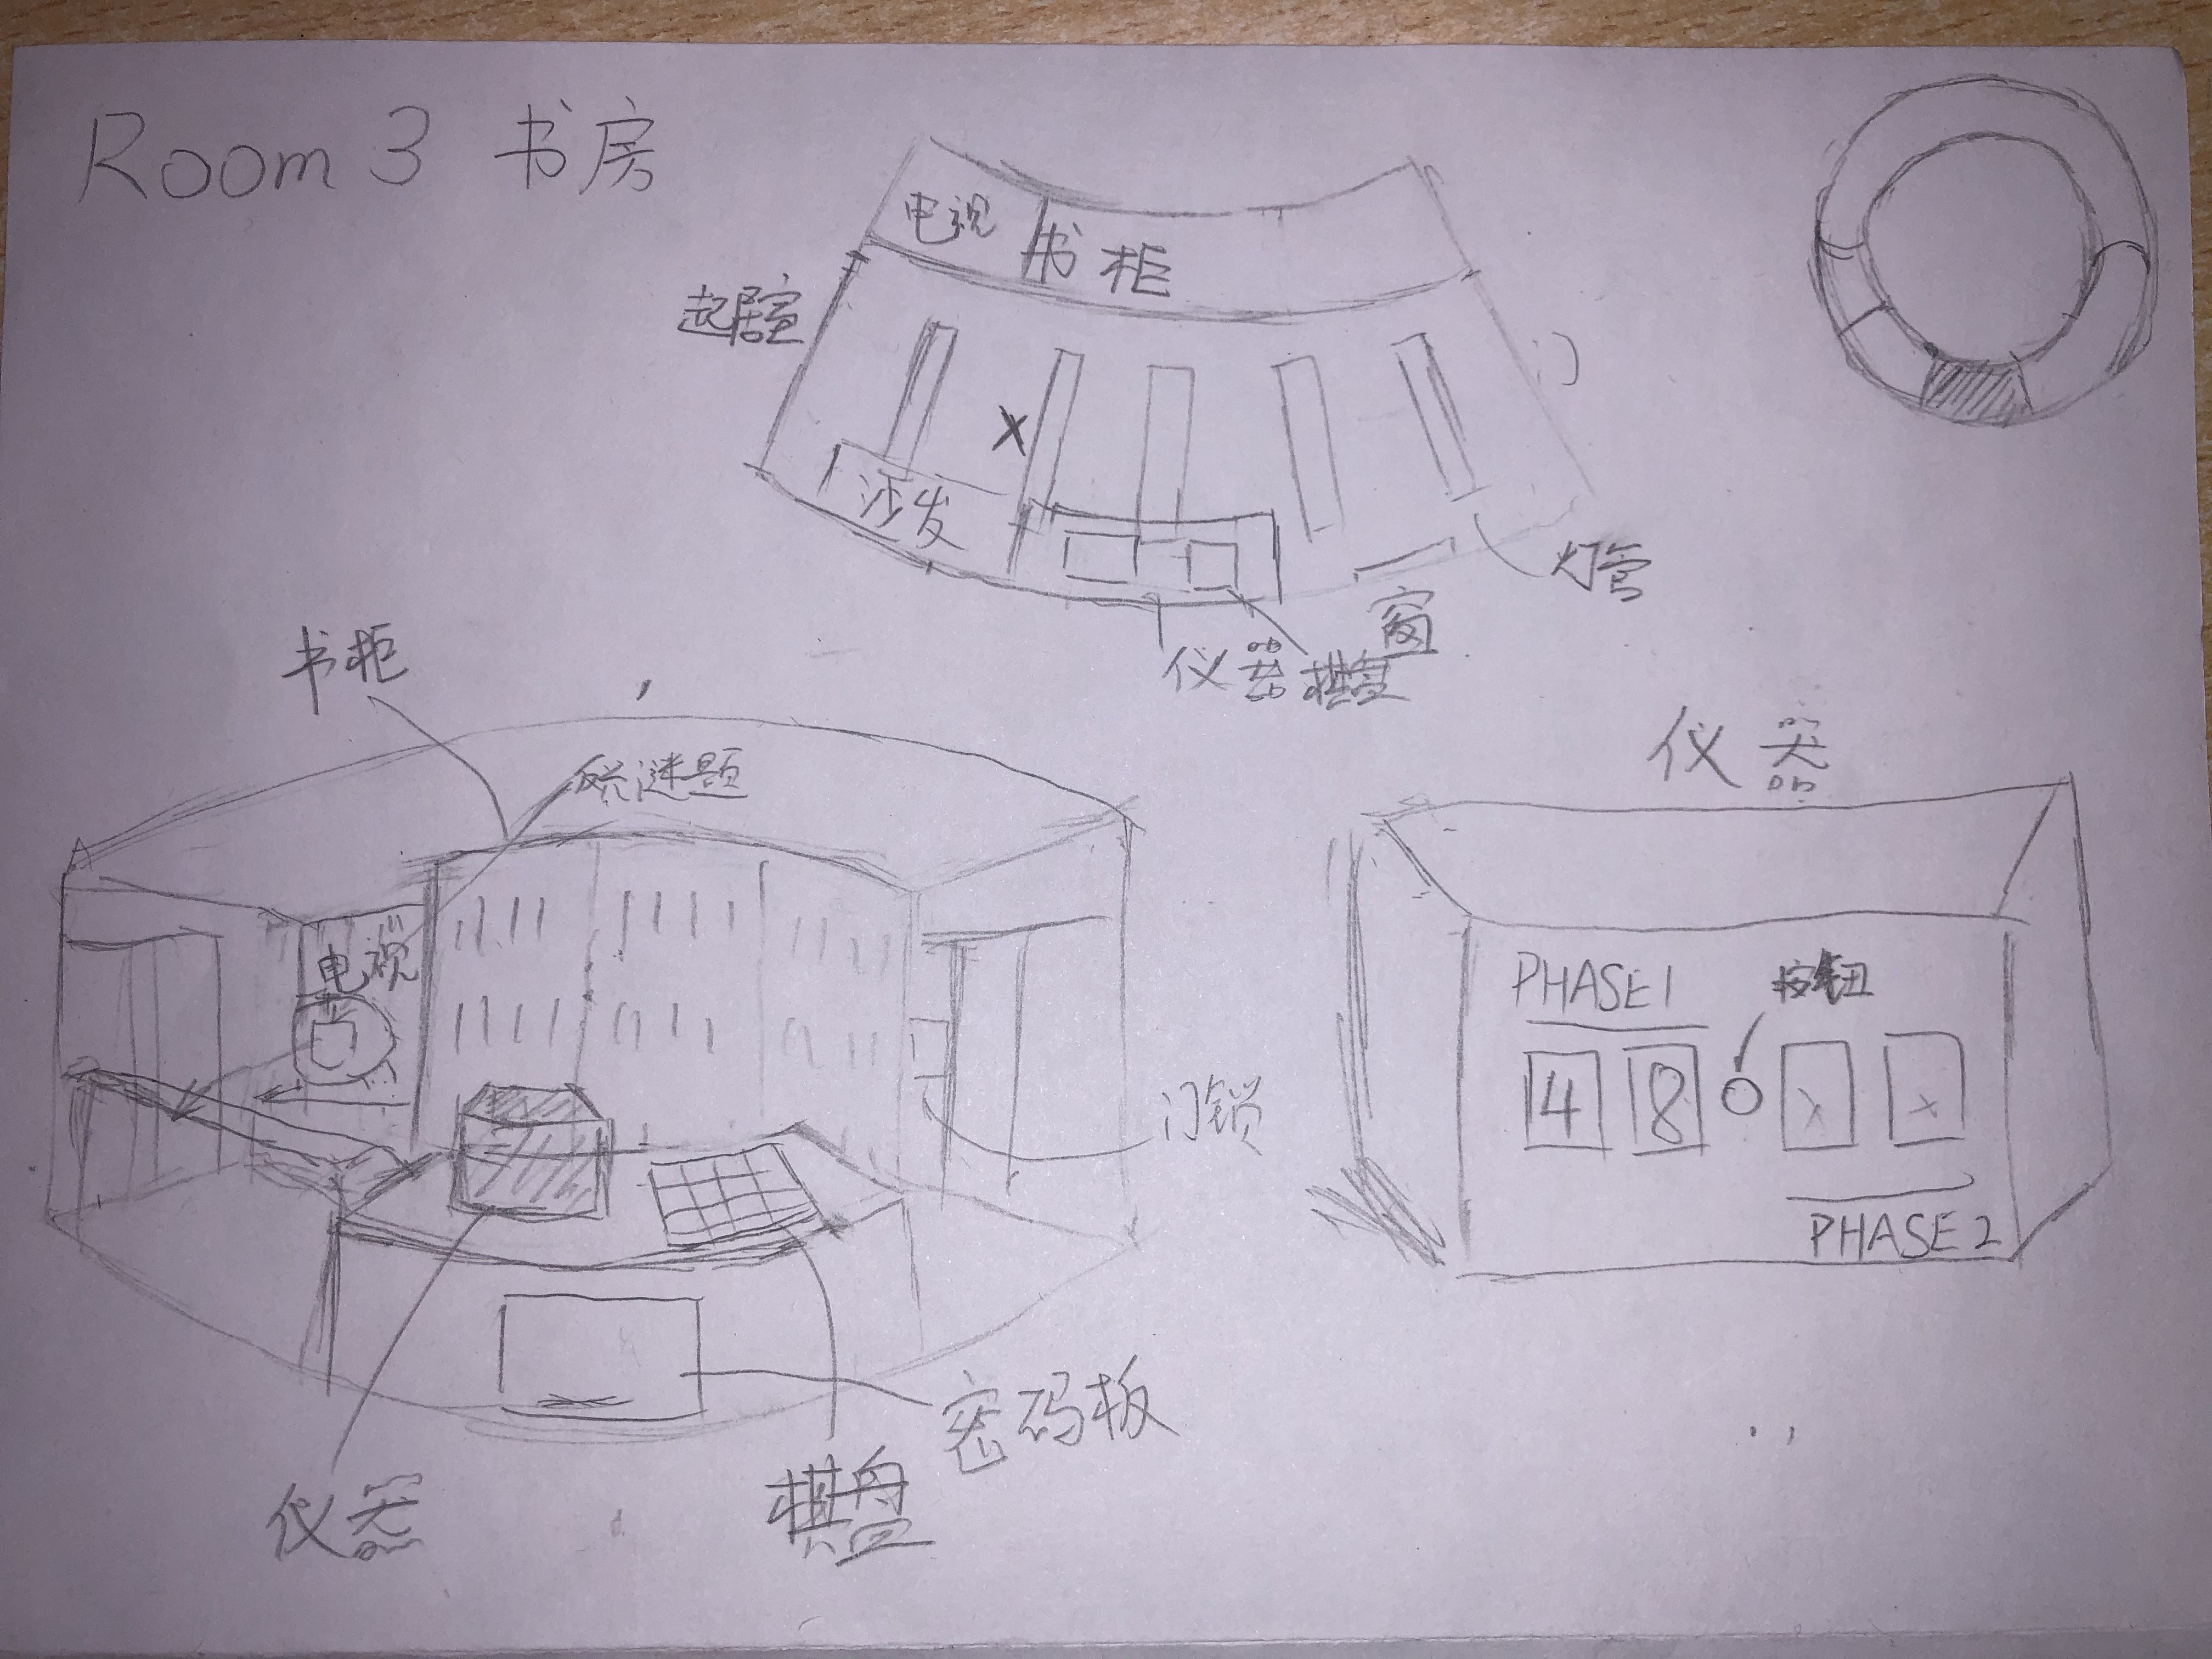 Room 3 书房
电视
书柜
起居室
X
沙发
灯管
窗
仪器
棋盘
书柜
谜题
电视
门锁
密码板
仪器
棋盘
仪器
PHASE1
按钮
4 8 x x
PHASE2